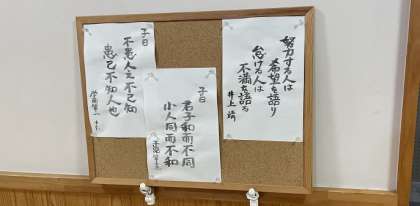 努力する人は
希望を語り
怠ける人は
不満を語る
井上靖
子曰
君子和而不同
小人同而不和
子曰
不患人之不己知
患己不知人也
学而第一